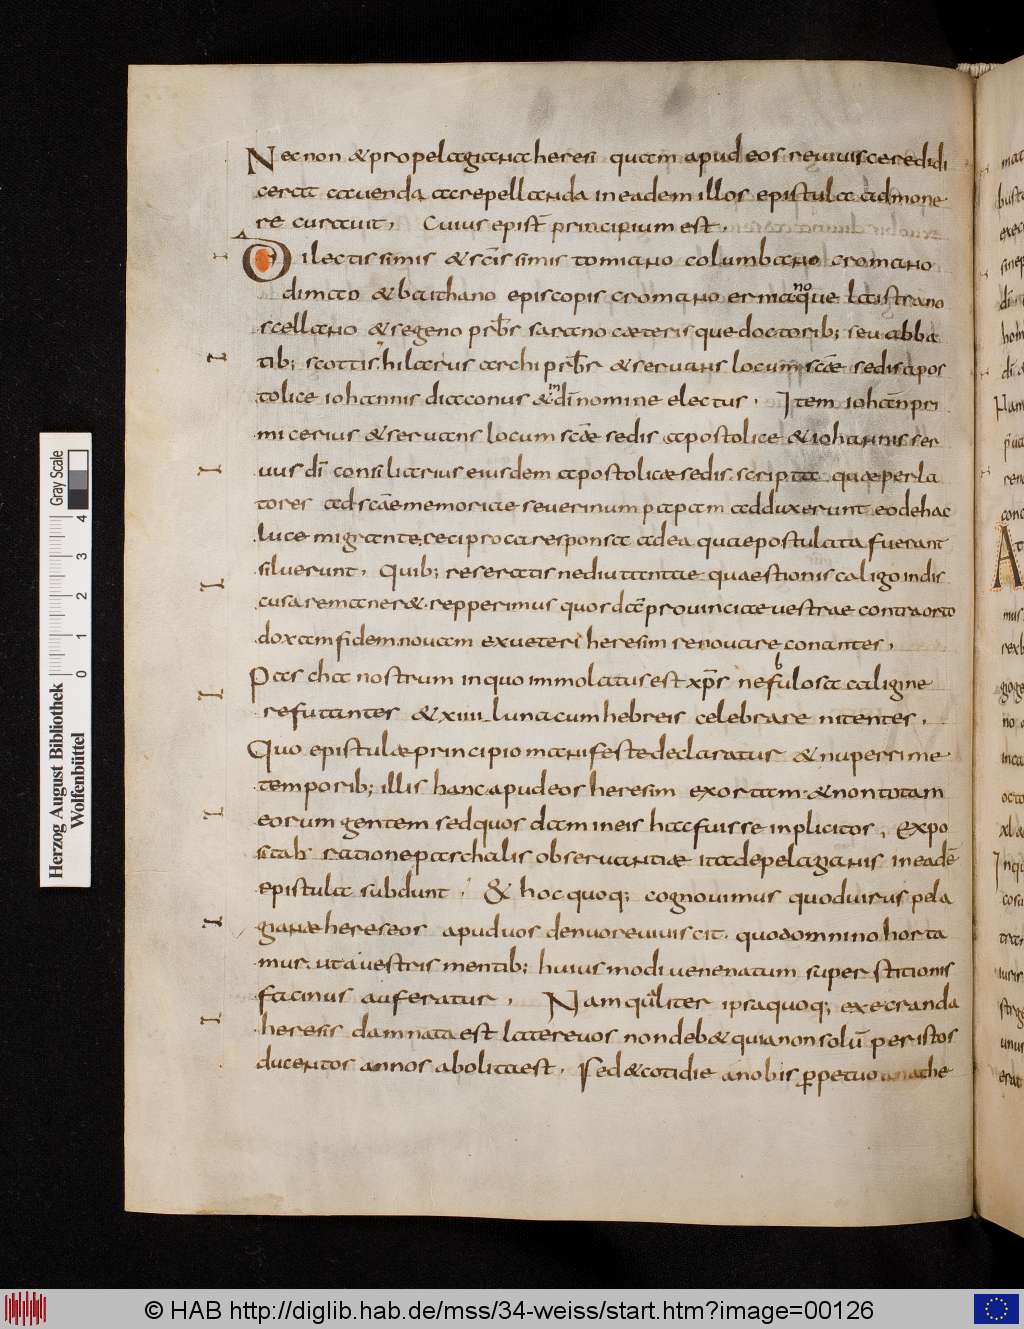 Necnon &propelagiana heresi quam apud eos reuiuiscere didi
cerat cauenda acrepellanda ineadem illos epistula admone
re curauit, Cuius epist̄ principium est.
Dilectissimis &sc̄issimis tomiano columbano cromano
dimao &baithano episcopis cromano ermaⁿᵒque laistrano
scellano &segeno prb̄r sarano cæterisque doctorib; seu abba
tib; scottis. hilarus archiprb̄r &seruans locum sc̄ae sedis apos
tolice iohannis diaconus &indī nomine electus. Item iohan̄ pri
micerius &seruans locum sc̄ae sedis apostolice &iohannis ser
uus dī consiliarius eiusdem apostolicæ sedis. scripta quæ perla
tores adsc̄ae memoriæ seuerinum papam adduxerunt eo dehac
luce migrante. reciproca responsa adea quae postulata fuerant
siluerunt. Quib; reseratis nediu tantae quaestionis caligo indis
cusa reman&er&. repperimus quordam̄ prouinciae uestrae contra orto
doxam fidem nouam exueteri heresim renouare conantes,
Pascha nostrum inquo immolatus est xp̄s nefulosa caligine
b
refutantes &xiiii luna cum hebreis celebrare nitentes.
Quo epistulæ principio manifeste declaratur &nuperrime
temporib; illis hanc apud eos heresim exortam &non totam
eorum gentem sed quosdam ineis hac fuisse inplicitos, Expo
sitaḃ ratione paschalis obseruantiæ ita depelagianis ineadē
epistula subdunt, & hoc quoq; cognouimus quod uirus pela
gianæ hereseos apud uos denuo reuiuiscit. quod omnino horta
mur. ut auestris mentib; huiusmodi uenenatum superstitionis
facinus auferatur, Nam qualiter ipsa quoq; execranda
heresis damnata est latere uos non deb& quia non solū peristos
ducentos annos abolita est. sed &cotidie anobis ꝑpetuo anathe
Herzog August Bibliothek
Wolfenbüttel
0 1 2 3 4
Gray Scale
© HAB http://diglib.hab.de/mss/34-weiss/start.htm?image=00126